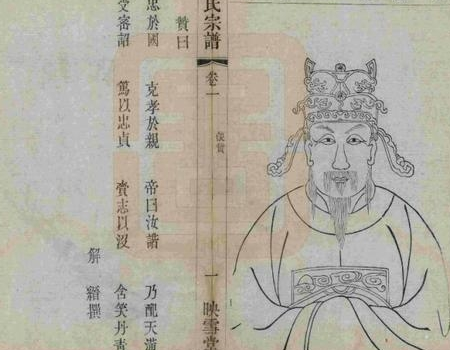 氏宗譜 卷一 像贊 一 映雪堂
贊曰
忠於國 克孝於親 帝曰汝諧 乃 天
受密詔 篤以忠貞 賫志以沒 含笑丹青
解縉撰